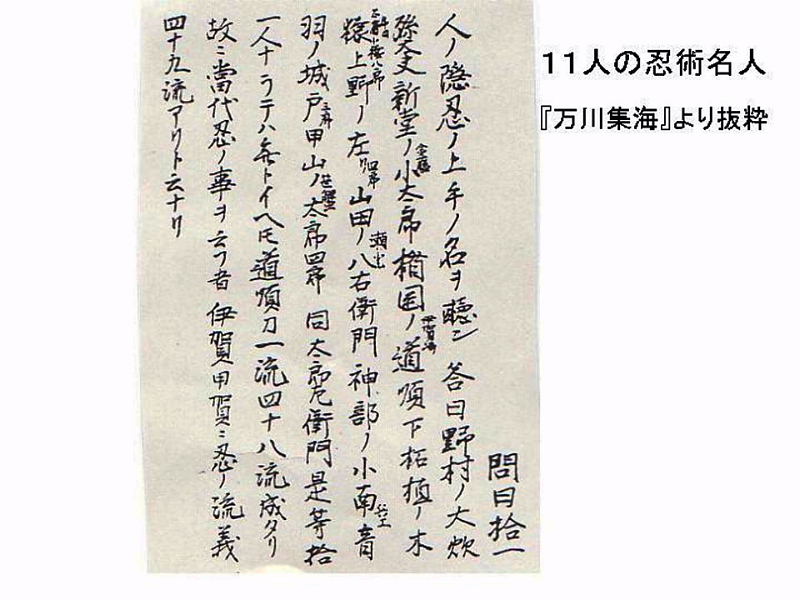 11人の忍術名人
『万川集海』より抜粋
問曰拾一
人ノ隠忍ノ上手ノ名ヲ聴ン 答曰野村ノ大炊
孫太夫新堂ノ小太郎楯岡ノ道順下柘植ノ木
猿上野ノ左山田ノ八右衛門神部ノ小南音
羽ノ城戸甲山ノ太郎四郎同太郎左衛門是等拾
一人ナラテハ無トイヘ𪜈道順カ一流四十八流成タリ
故ニ當代忍ノ事ヲ云フ者伊賀甲賀ニ忍ノ流義
四十九流アリト云ナリ